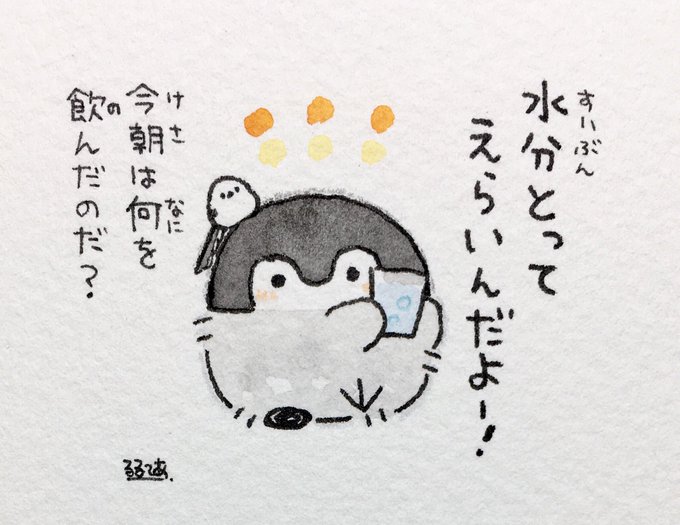 水分とって
えらいんだよー!
今朝は何を
飲んだのだ?
すいぶん
けさ
なに
の
るるてあ.